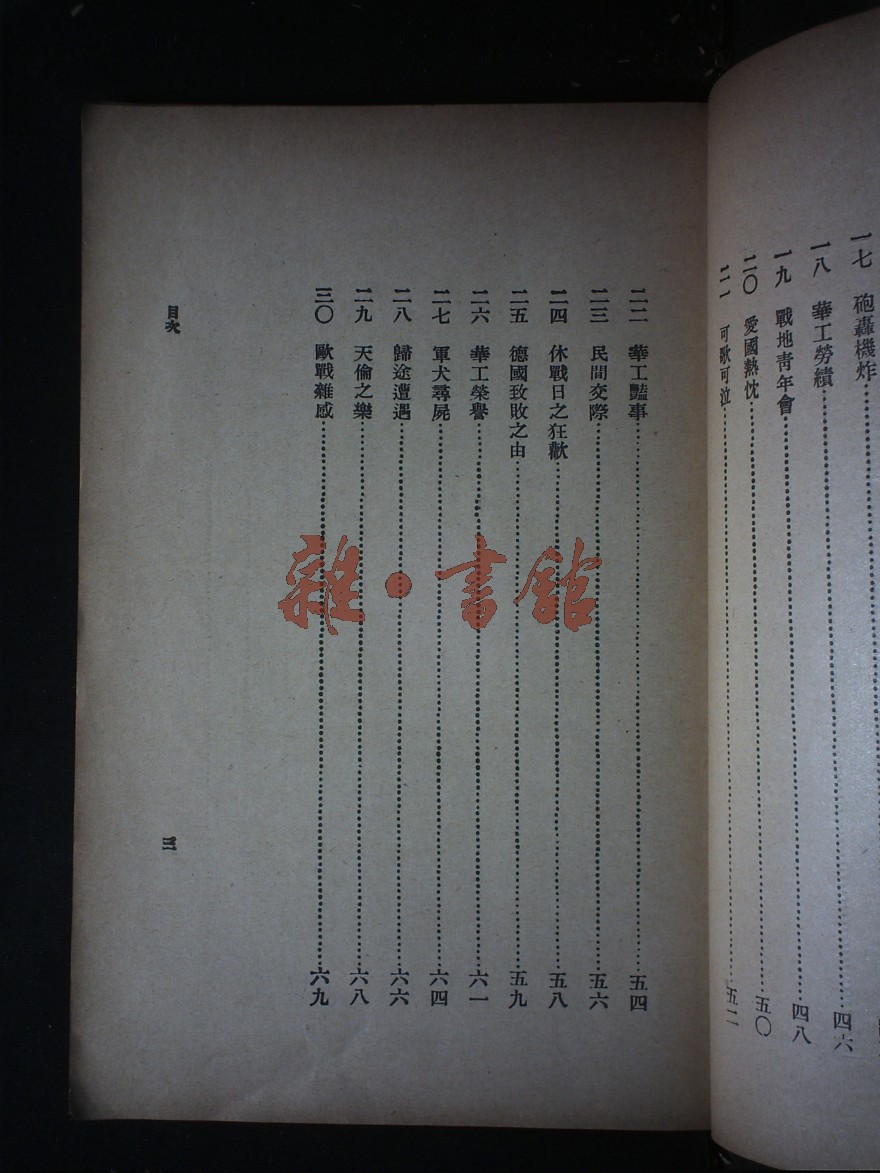 一七 砲轟機炸
一八 華工勞績……四六
一九 戰地靑年會……四八
二〇 愛國熱忱……五〇
二一 可歌可泣……五二
二二 華工豔事……五四
二三 民間交際……五六
二四 休戰日之狂歡……五八
二五 德國致敗之由……五九
二六 華工榮譽……六一
二七 軍犬尋屍……六四
二八 歸途遭遇……六六
二九 天倫之樂……六八
三〇 歐戰雜感……六九
目次
三
雜·書館